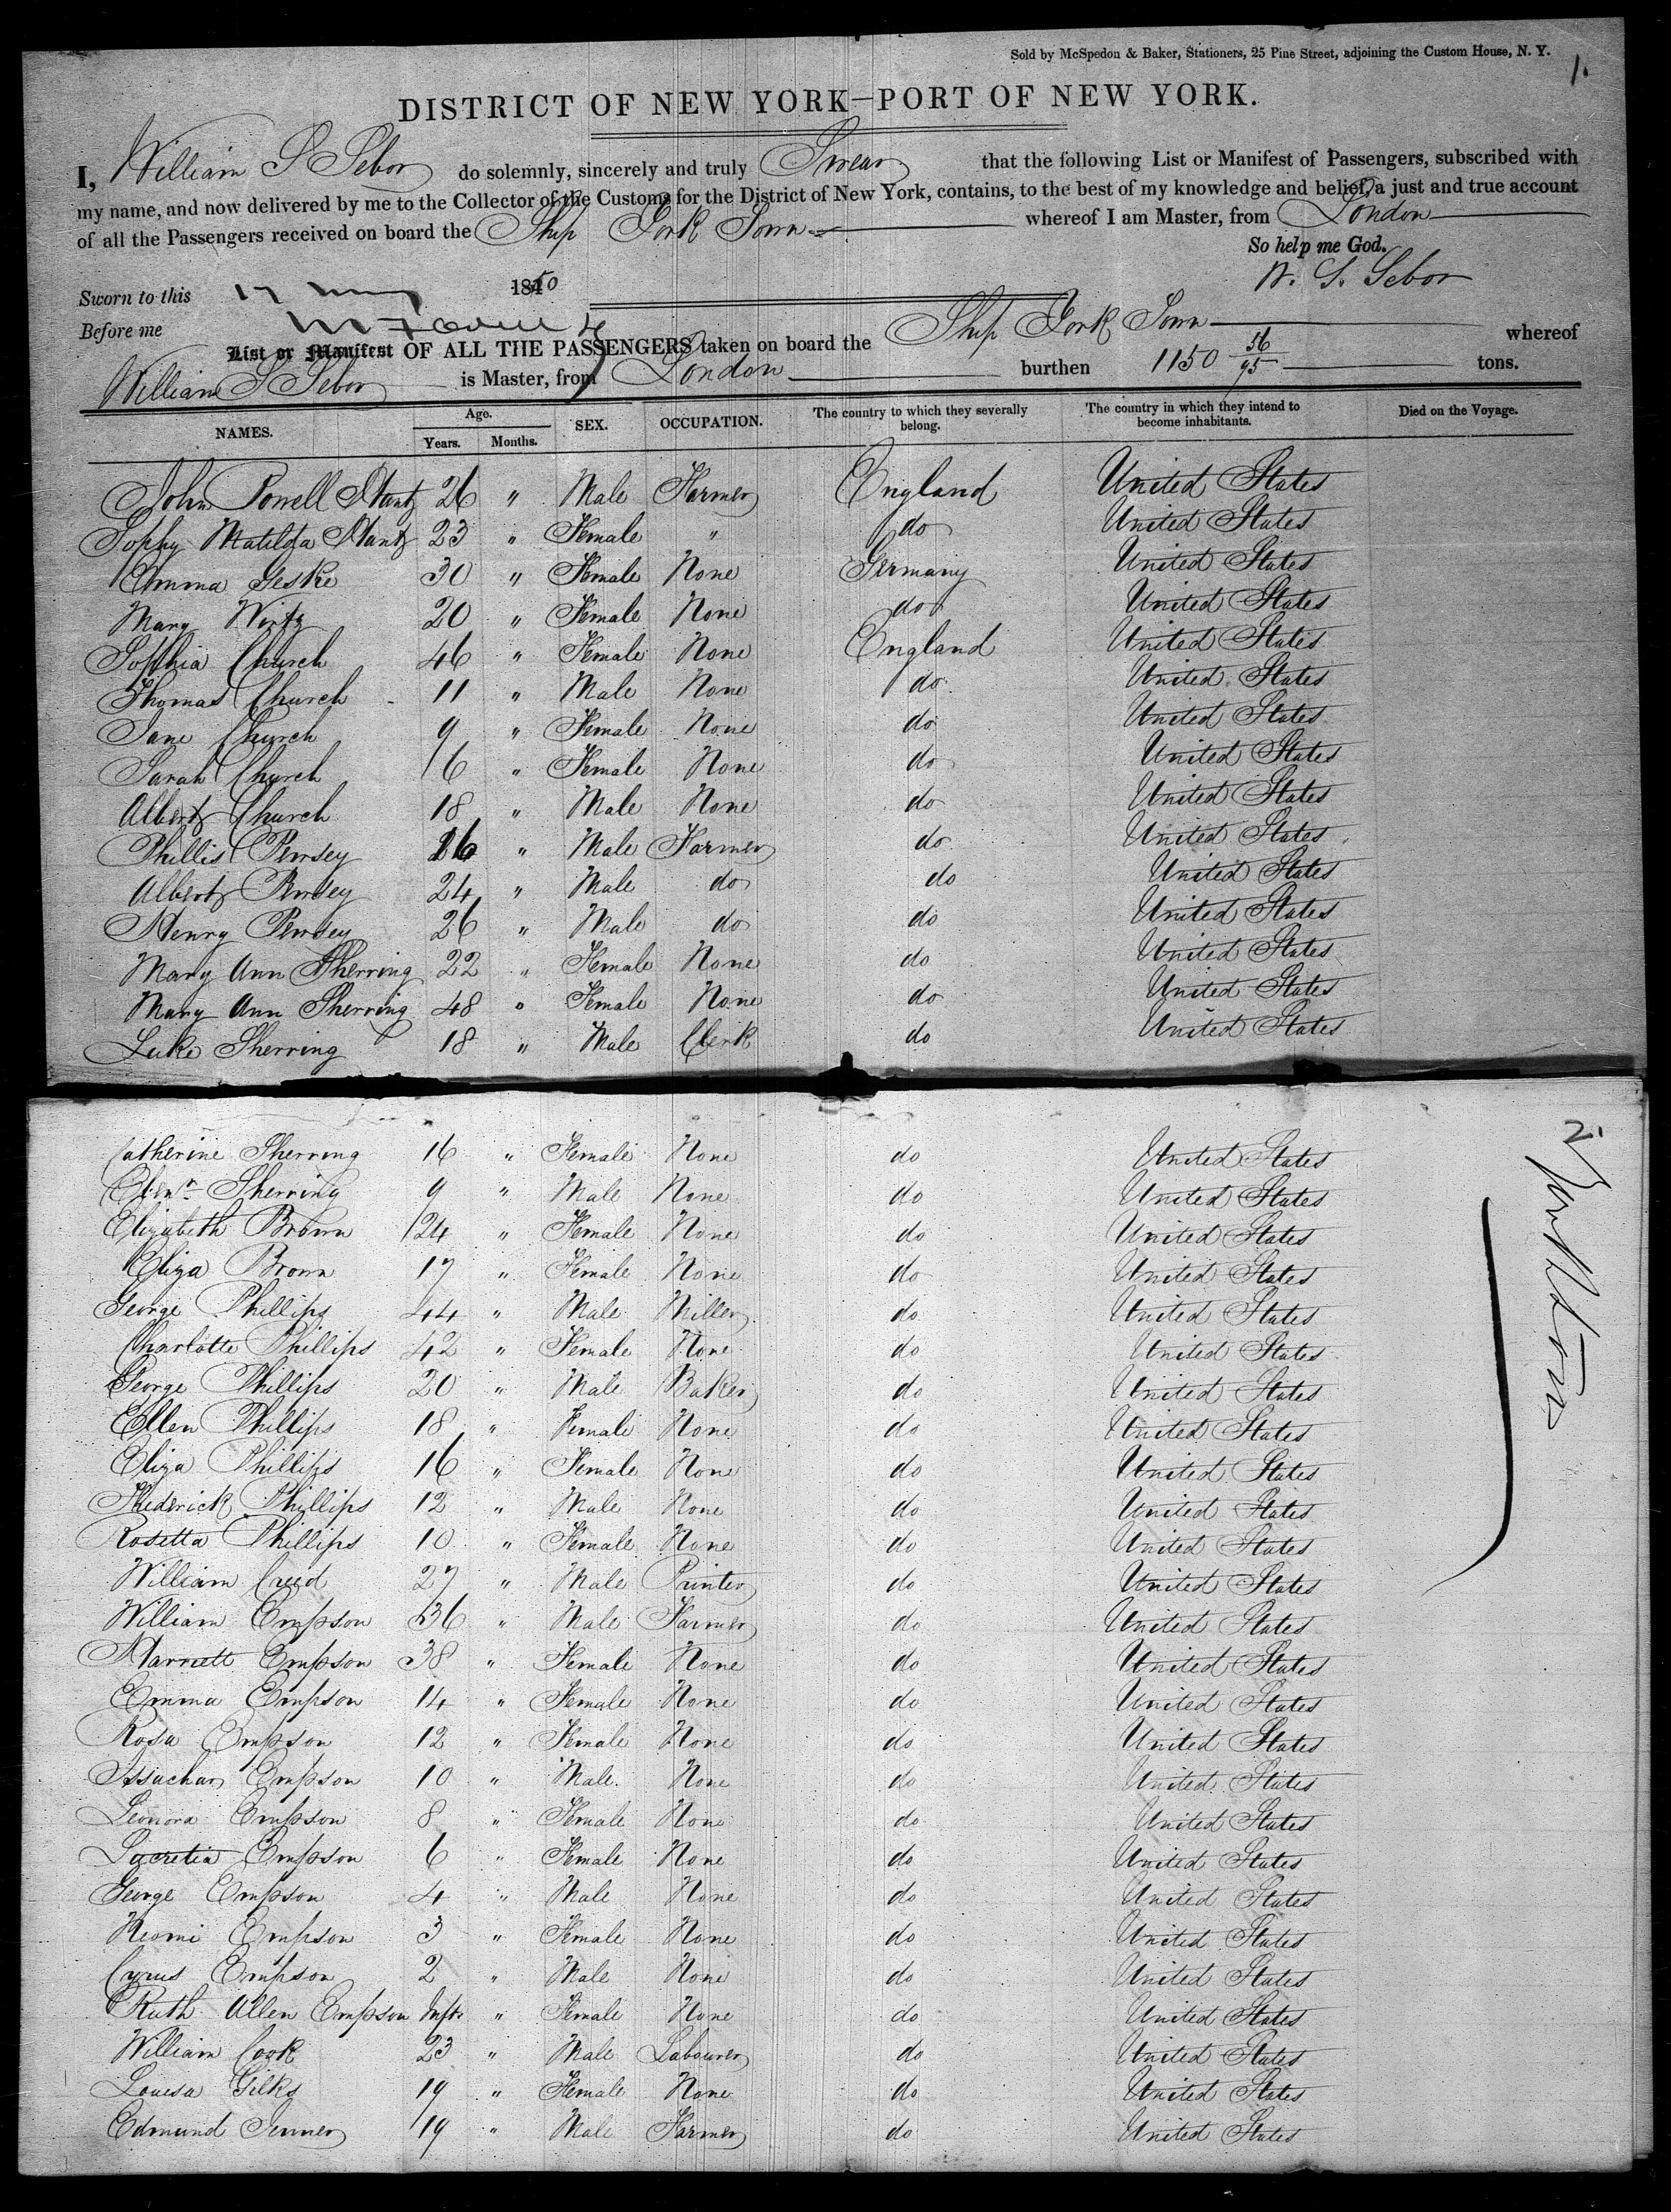 Sold by McSpedon & Baker, Stationers, 25 Pine Street, adjoining the Custom House, N. Y.
1.
DISTRICT OF NEW YORK—PORT OF NEW YORK.
I, William S Sebor do solemnly, sincerely and truly Swear that the following List or Manifest of Passengers, subscribed with
my name, and now delivered by me to the Collector of the Customs for the District of New York, contains, to the best of my knowledge and belief, a just and true account
of all the Passengers received on board the Ship York Town whereof I am Master, from London
So help me God.
W. S. Sebor
Sworn to this 17 May 1850
Before me
List or Manifest OF ALL THE PASSENGERS taken on board the Ship York Town whereof
William S Sebor is Master, from London burthen 1150 56/95 tons.
NAMES. Age. Years. Months. SEX. OCCUPATION. The country to which they severally belong. The country in which they intend to become inhabitants. Died on the Voyage.
John Powell 26 " Male Farmer England United States
Sophy Matilda 23 " Female " do United States
Emma Geske 30 " Female None Germany United States
Mary Wirtz 20 " Female None do United States
Sophia Church 46 " Female None England United States
Thomas Church 11 " Male None do United States
Jane Church 9 " Female None do United States
Sarah Church 16 " Female None do United States
Albert Church 18 " Male None do United States
Phillis Pewsey 26 " Male Farmer do United States
Albert Pewsey 24 " Male do do United States
Henry Pewsey 26 " Male do do United States
Mary Ann Sherring 22 " Female None do United States
Mary Ann Sherring 48 " Female None do United States
Luke Sherring 18 " Male Clerk do United States
2.
York Town
Catherine Sherring 16 " Female None do United States
Ebenr Sherring 9 " Male None do United States
Elizabeth Brown 24 " Female None do United States
Eliza Brown 17 " Female None do United States
George Phillips 44 " Male Miller do United States
Charlotte Phillips 42 " Female None do United States
George Phillips 20 " Male Baker do United States
Ellen Phillips 18 " Female None do United States
Eliza Phillips 16 " Female None do United States
Frederick Phillips 12 " Male None do United States
Rosetta Phillips 10 " Female None do United States
William Creed 27 " Male Printer do United States
William Empson 36 " Male Farmer do United States
Harriett Empson 38 " Female None do United States
Emma Empson 14 " Female None do United States
Rosa Empson 12 " Female None do United States
Issachar Empson 10 " Male None do United States
Leonora Empson 8 " Female None do United States
Lucretia Empson 6 " Female None do United States
George Empson 4 " Male None do United States
Neomi Empson 3 " Female None do United States
Cyrus Empson 2 " Male None do United States
Ruth Allen Empson Inft " Female None do United States
William Cook 23 " Male Labourer do United States
Louisa Gilks 19 " Female None do United States
Edmund Jenner 19 " Male Farmer do United States